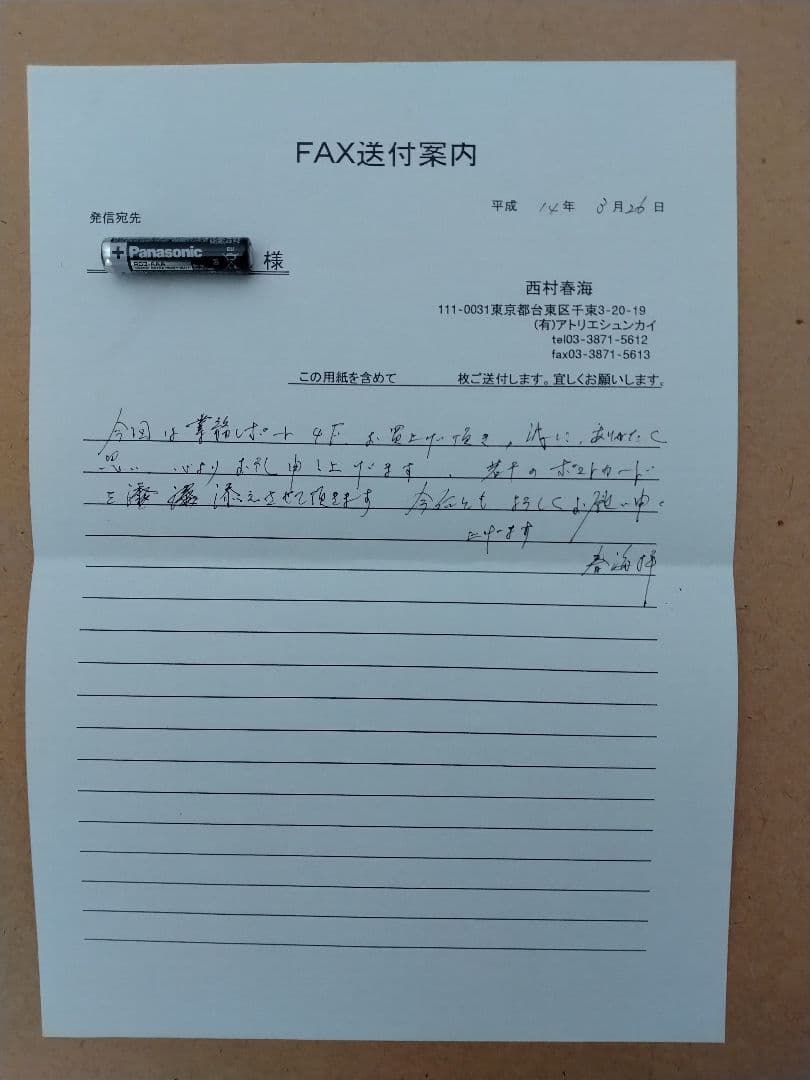 FAX送付案内
平成 14年 3月26日
発信宛先
+ Panasonic
様
西村春海
111-0031東京都台東区千束3-20-19
(有)アトリエシュンカイ
tel03-3871-5612
fax03-3871-5613
この用紙を含めて 枚ご送付します。宜しくお願いします。
今回は お買上げ頂き、誠に、ありがたく
思い 心よりお礼申し上げます、若干のポストカード
を 添えさせて頂きます 今后とも よろしくお願い申し
上げます
春海拝